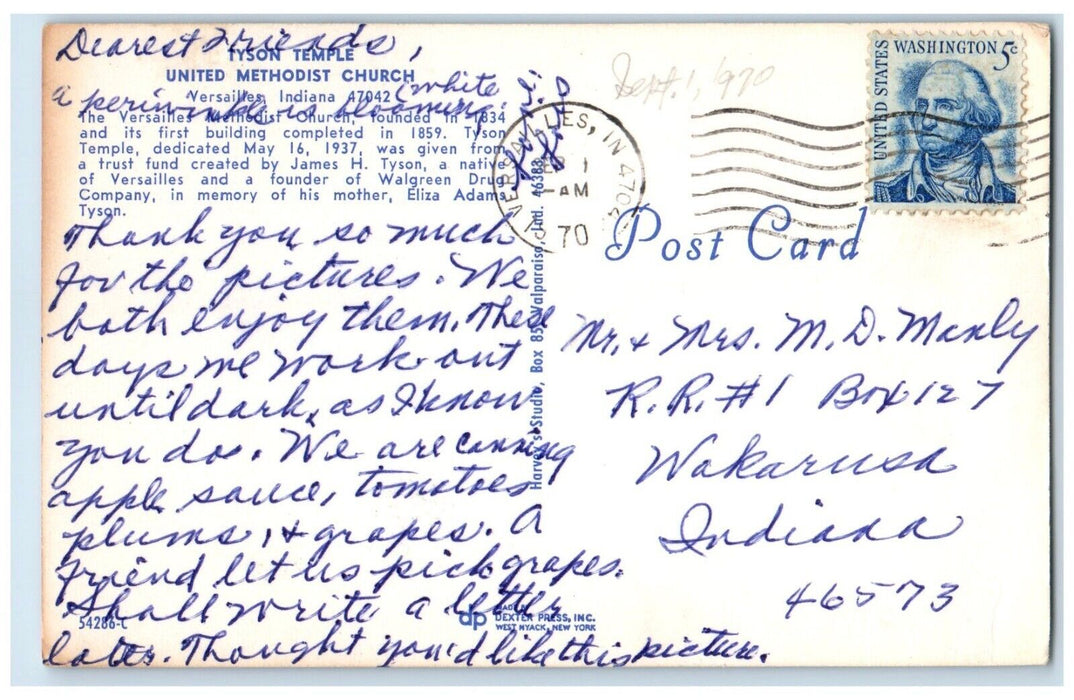 Dearest Friends,
TYSON TEMPLE
UNITED METHODIST CHURCH
Versailles, Indiana 47042
The Versailles Methodist Church, founded in 1834
and its first building completed in 1859. Tyson
Temple, dedicated May 16, 1937, was given from
a trust fund created by James H. Tyson, a native
of Versailles and a founder of Walgreen Drug
Company, in memory of his mother, Eliza Adams
Tyson.
a periwinkle is blooming (white
Thank you so much
for the pictures. We
both enjoy them. These
days we work out
until dark, as I know
you do. We are canning
apple sauce, tomatoes
plums, + grapes. A
friend let us pick grapes.
Shall write a letter
later. Thought you'd like this picture.
54286-C
dp
MADE BY
DEXTER PRESS, INC.
WEST NYACK, NEW YORK
Harvey's Studio, Box 85, Valparaiso, Ind. 46383
Sept. 1, 1970
VERSAILLES, IN 4704
SEP 1
AM
70
UNITED STATES
WASHINGTON 5c
Post Card
Mr. + Mrs. M. D. Manly
R. R. #1 Box 127
Wakarusa
Indiana
46573